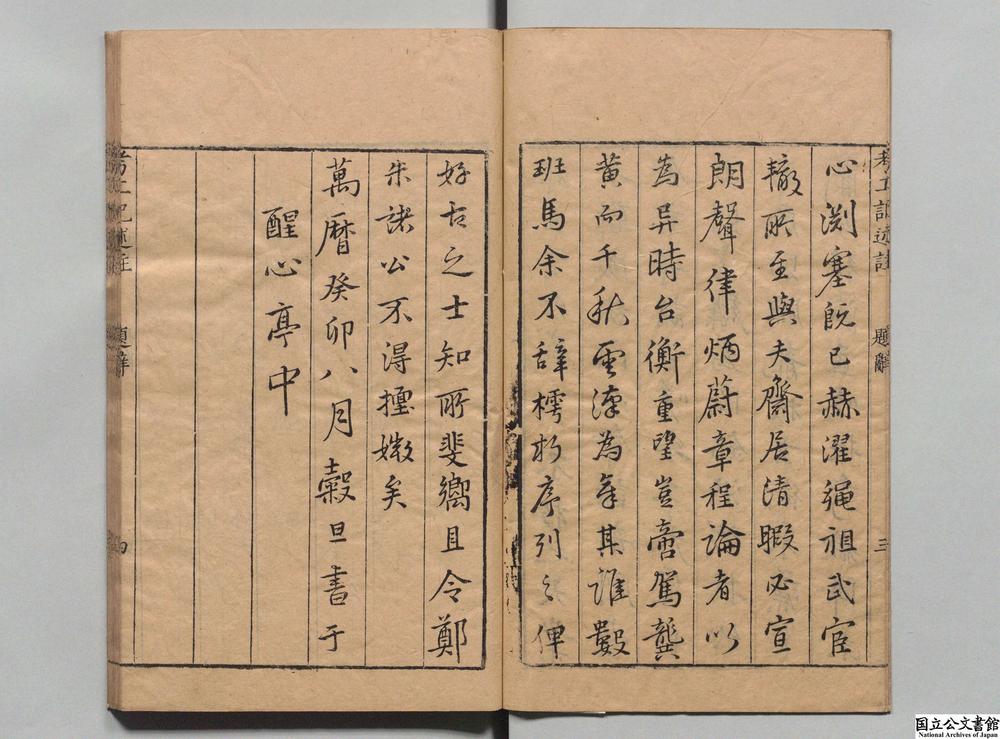 考工記述註 題辭 三
心渊塞既已赫濯繩祖武宦
轍所至與夫齋居清暇必宣
朗聲律炳蔚章程論者以
為异時台衡重望豈啻駕龔
黄而千秋雲漢為章其誰斁
班馬余不辭樗朽序列之俾
好古之士知所斐嚮且令鄭
朱諸公不得擅媺矣
萬曆癸卯八月穀旦書于
醒心亭中
考工記述註 題辭 四
国立公文書館
National Archives of Japan